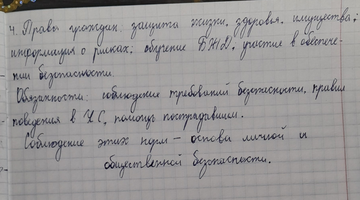 4. Права граждан: защита жизни, здоровья, имущества;
информация о рисках, обучение БЖД, участие в обеспече-
нии безопасности.
Обязанности: соблюдение требований безопасности, правил
поведения в ЧС, помощь пострадавшим.
Соблюдение этих норм – основа личной и
общественной безопасности.